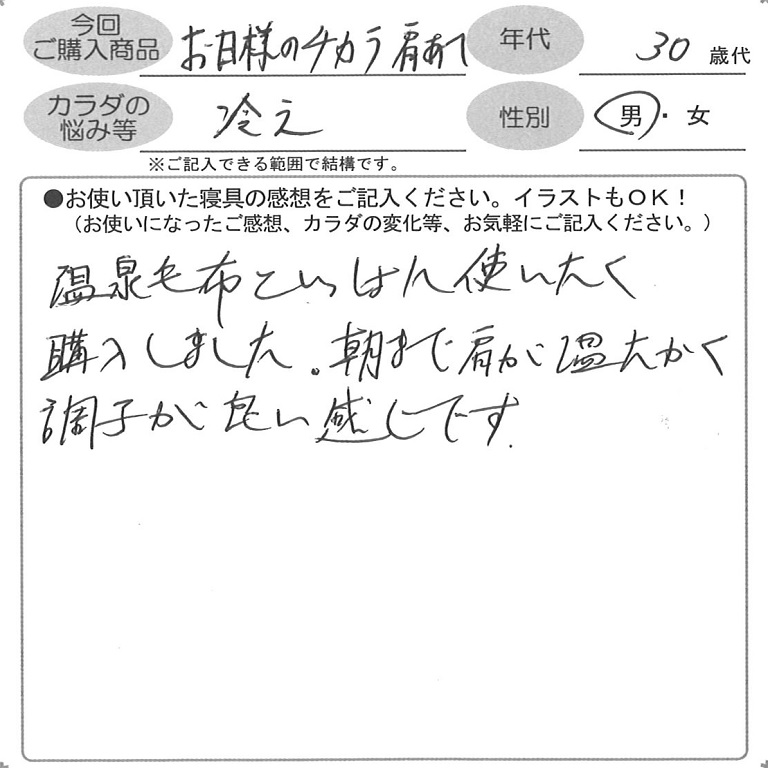 今回
ご購入商品
お日様のチカラ肩あて
年代
30歳代
カラダの
悩み等
冷え
性別
男・女
※ご記入できる範囲で結構です。
●お使い頂いた寝具の感想をご記入ください。イラストもOK！
（お使いになったご感想、カラダの変化等、お気軽にご記入ください。）
温泉毛布といっしょに使いたく
購入しました。朝まで肩が温たかく
調子が良い感じです.